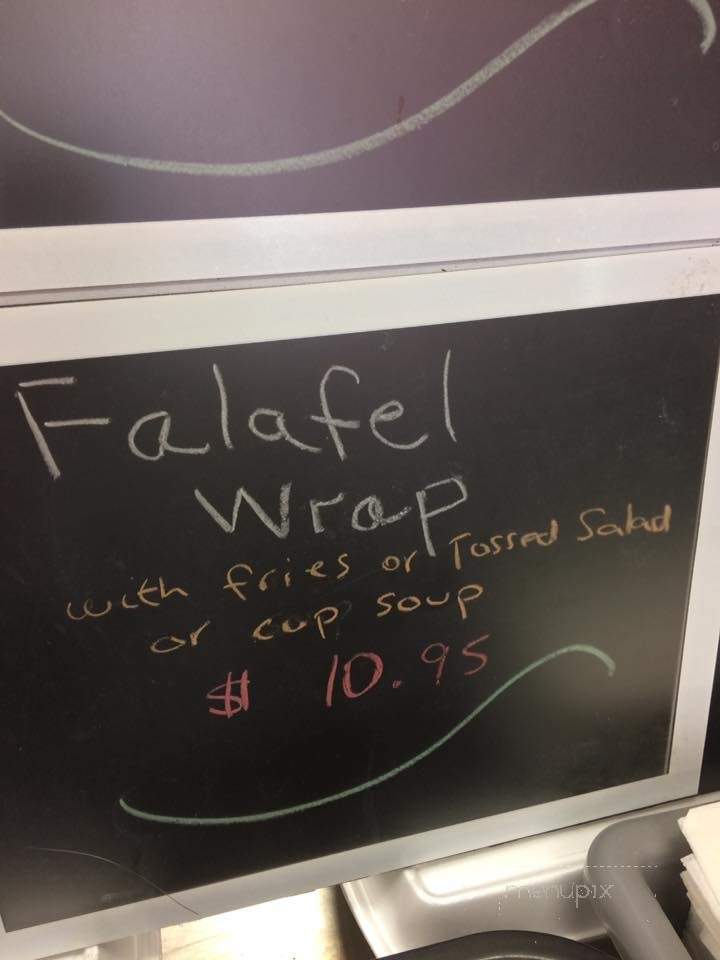 Falafel
Wrap
with fries or Tossed Salad
or cup soup
$ 10.95
menupix